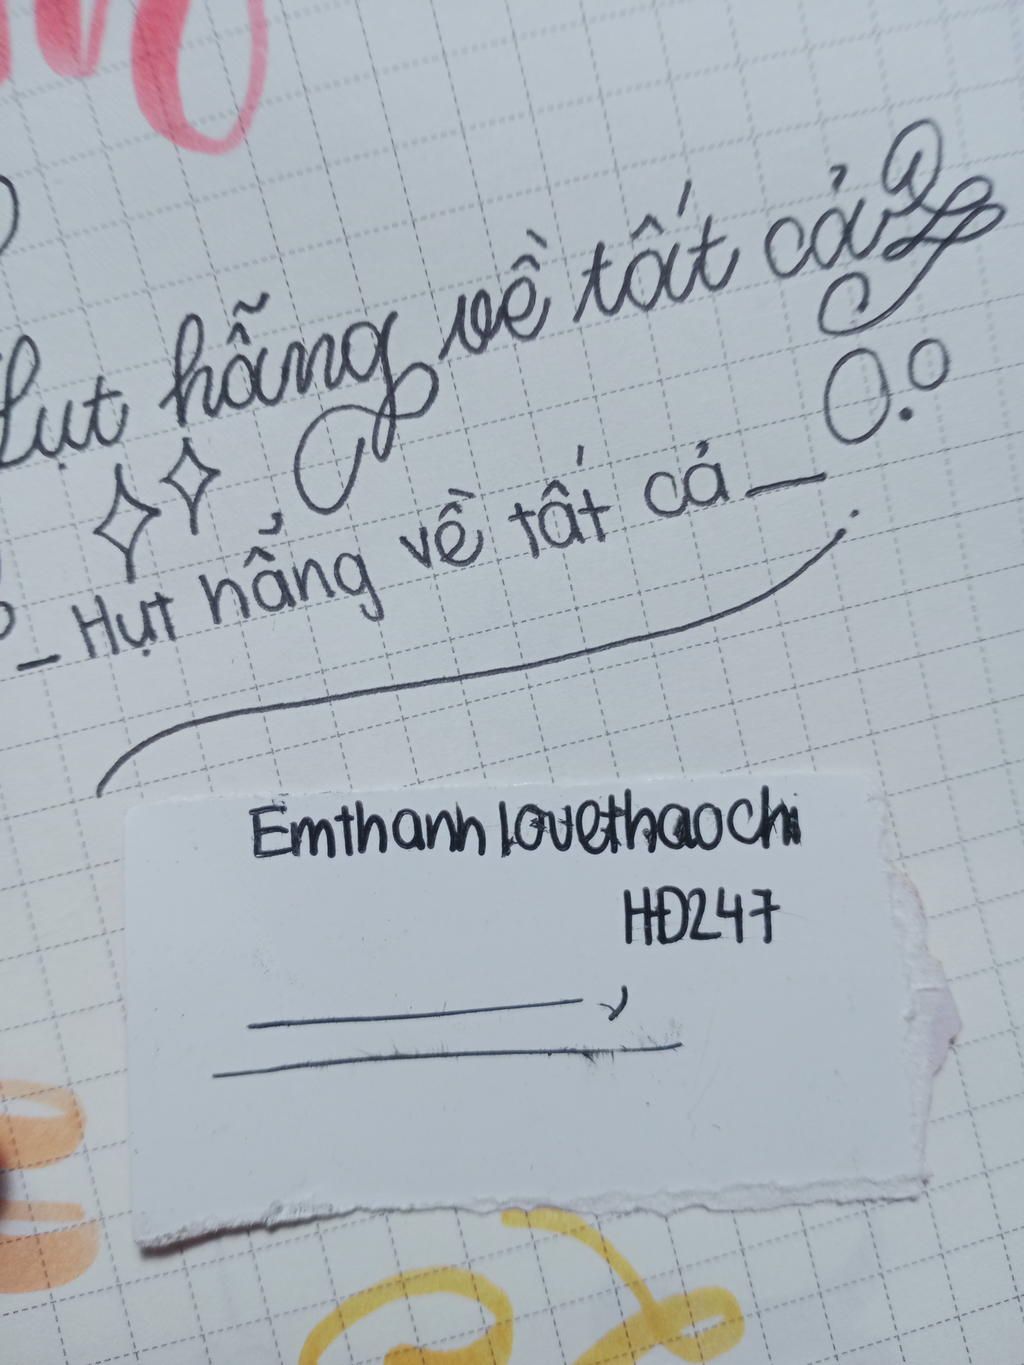 Hụt hẫng về tất cả
_ Hụt hẫng về tất cả _
Emthanhlovethaochi
HĐ247